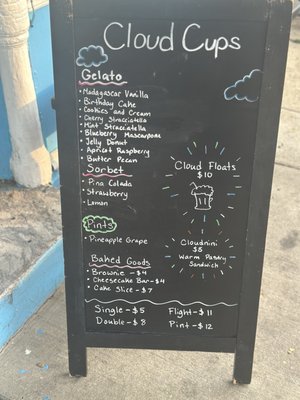 Cloud Cups
Gelato
- Madagascar Vanilla
- Birthday Cake
- Cookies and Cream
- Cherry Stracciatella
- Mint Stracciatella
- Blueberry Mascarpone
- Jelly Donut
- Apricot Raspberry
- Butter Pecan
Sorbet
- Pina Colada
- Strawberry
- Lemon
Pints
- Pineapple Grape
Baked Goods
- Brownie - $4
- Cheesecake Bar - $4
- Cake Slice - $7
Cloud Floats
$10
Cloudnini
$8
Warm Pastry
Sandwich
Single - $5
Double - $8
Flight - $11
Pint - $12